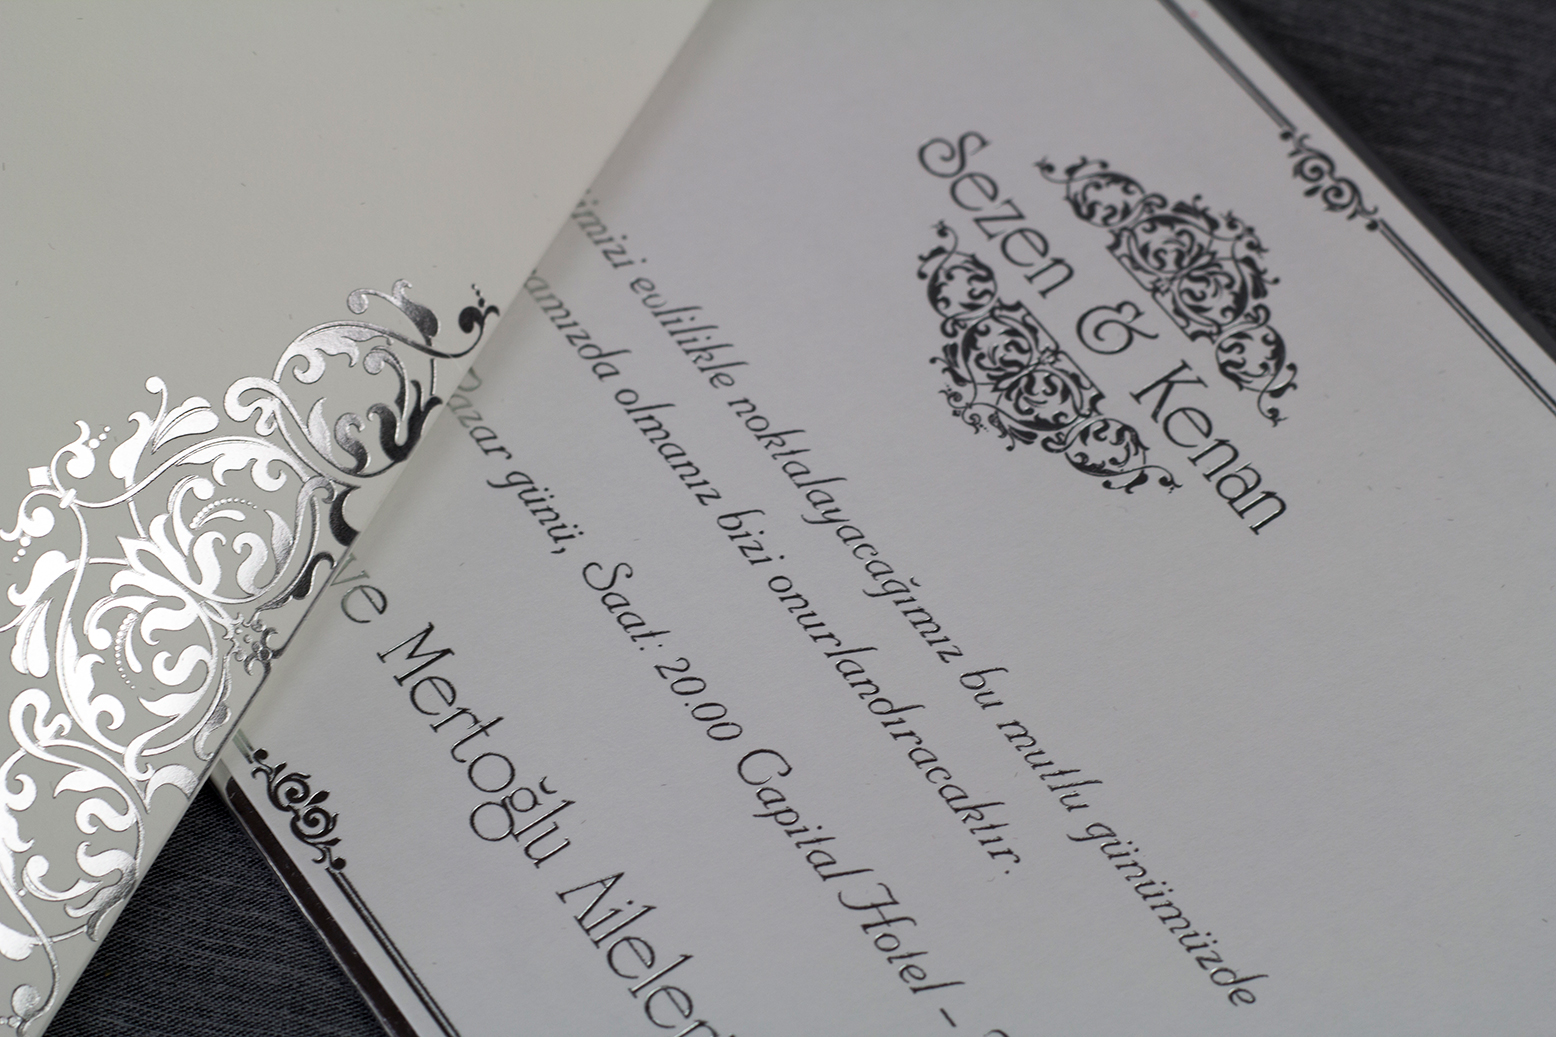 Sezen & Kenan
imizi evlilikle noktalayacağımız bu mutlu günümüzde
amızda olmanız bizi onurlandıracaktır.
Pazar günü, Saat: 20.00 Capital Hotel -
ve Mertoğlu Aileleri